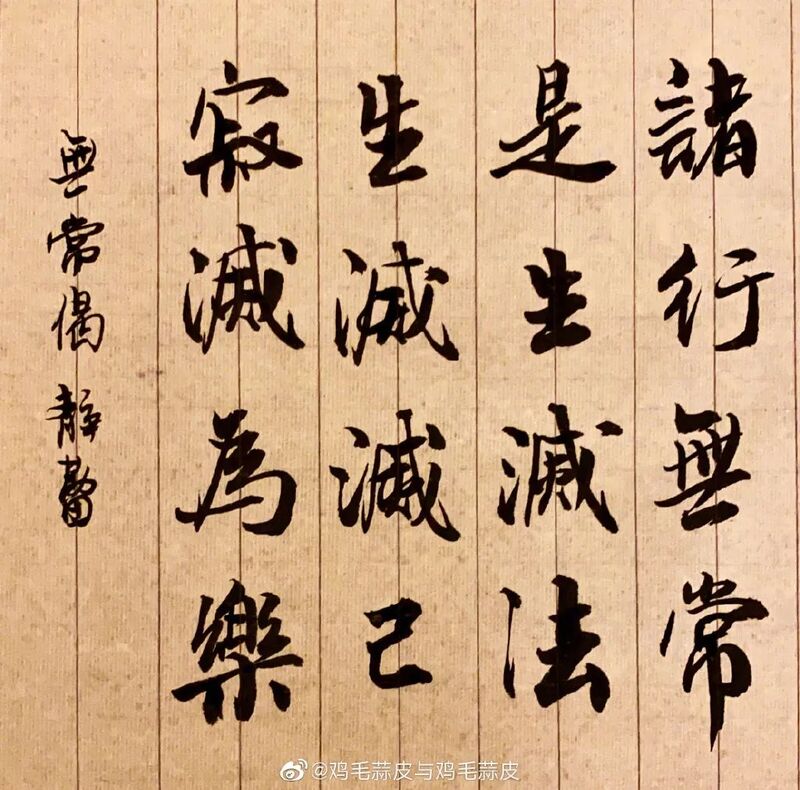 諸行無常
是生滅法
生滅滅己
寂滅為樂
無常偈 靜蕾
@鸡毛蒜皮与鸡毛蒜皮